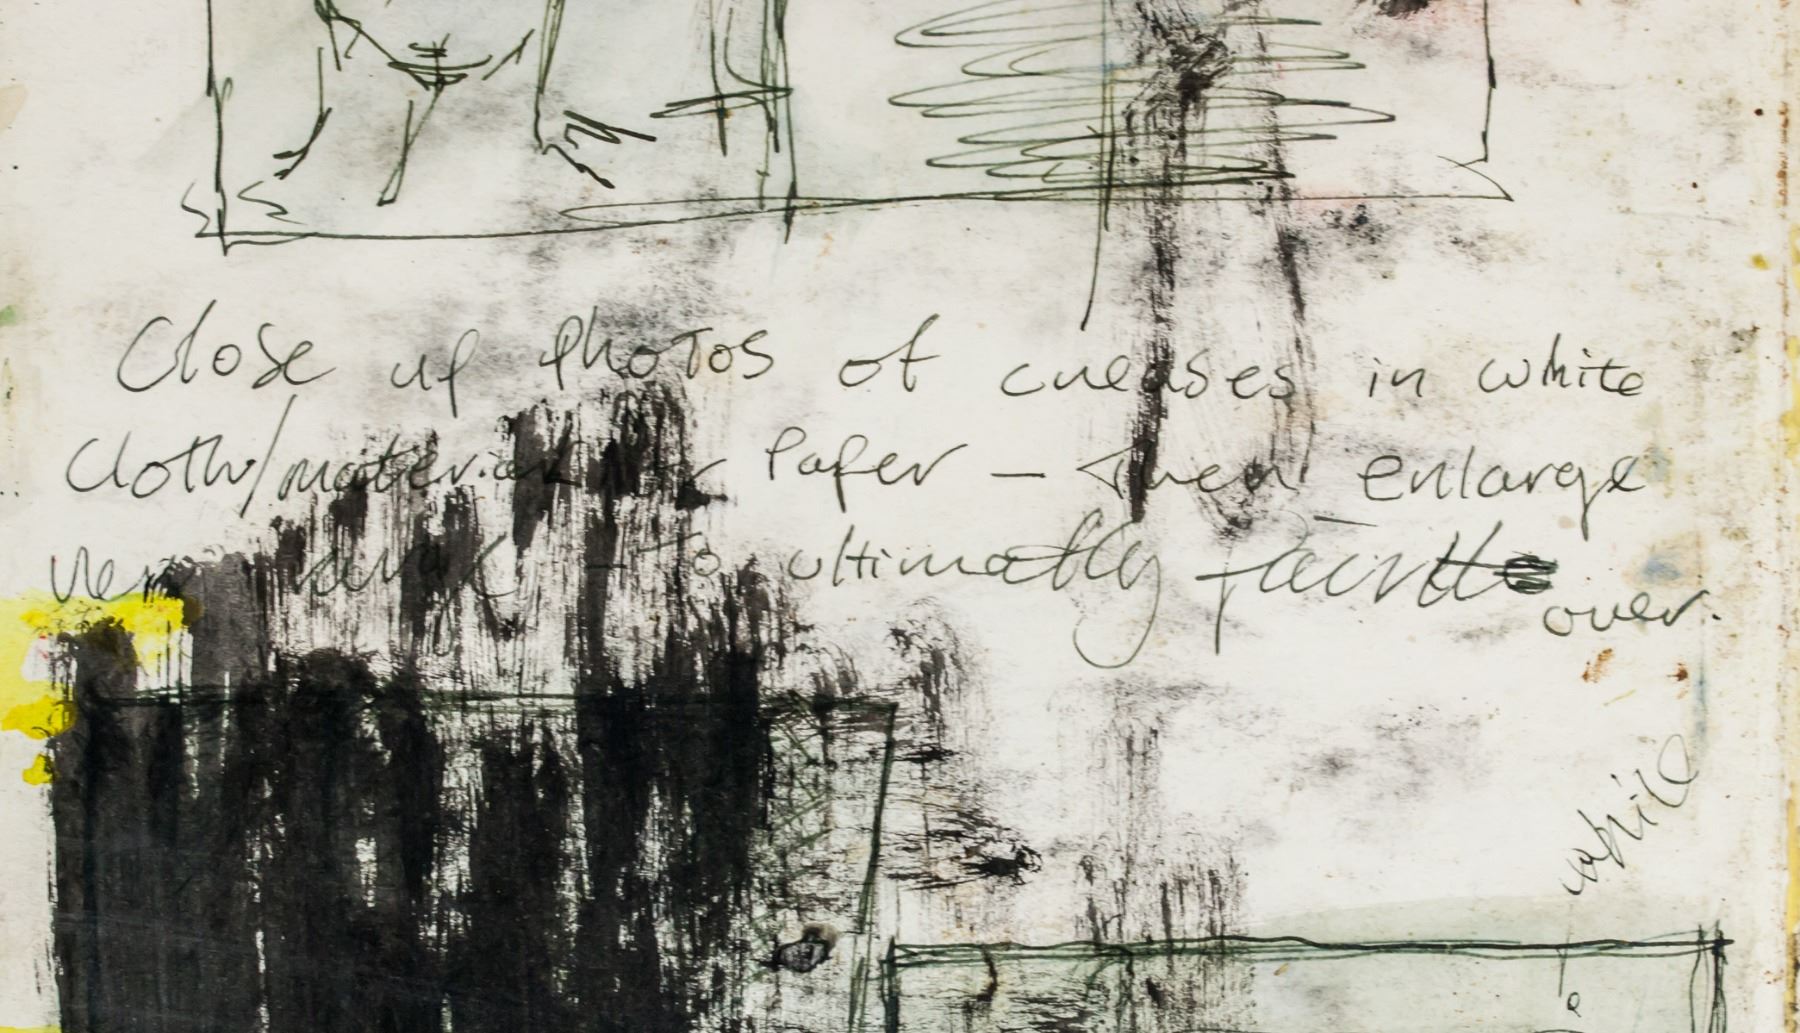 Close up photos of creases in white
cloth/material or Paper — then enlarge
very large — to ultimatly paint
over.
white